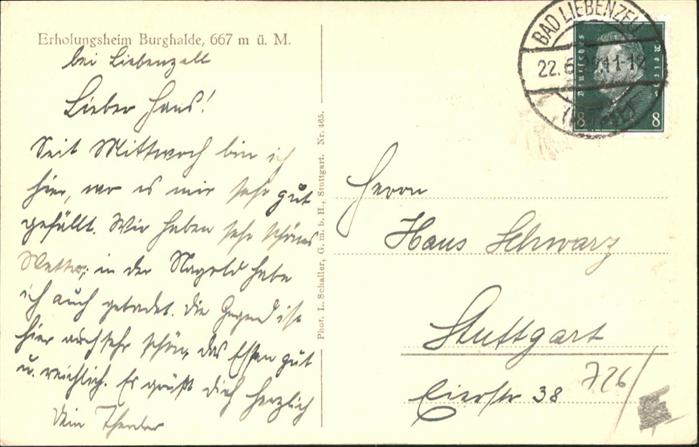 Erholungsheim Burghalde, 667 m ü. M.
bei Liebenzell
Lieber Hans!
Seit Mittwoch bin ich
hier, wo es mir sehr gut
gefällt. Wir haben sehr schönes
Wetter, in der Nagold habe
ich auch gebadet. die Gegend ist
hier auch sehr schön, das Essen gut
u. reichlich. Es grüßt dich herzlich
Dein Theodor
Phot. L. Schaller, G. m. b. H., Stuttgart. Nr. 465.
BAD LIEBENZELL
22.6. 11-12
Deutsches Reich
8 8
Herrn
Hans Schwarz
Stuttgart
38
726/